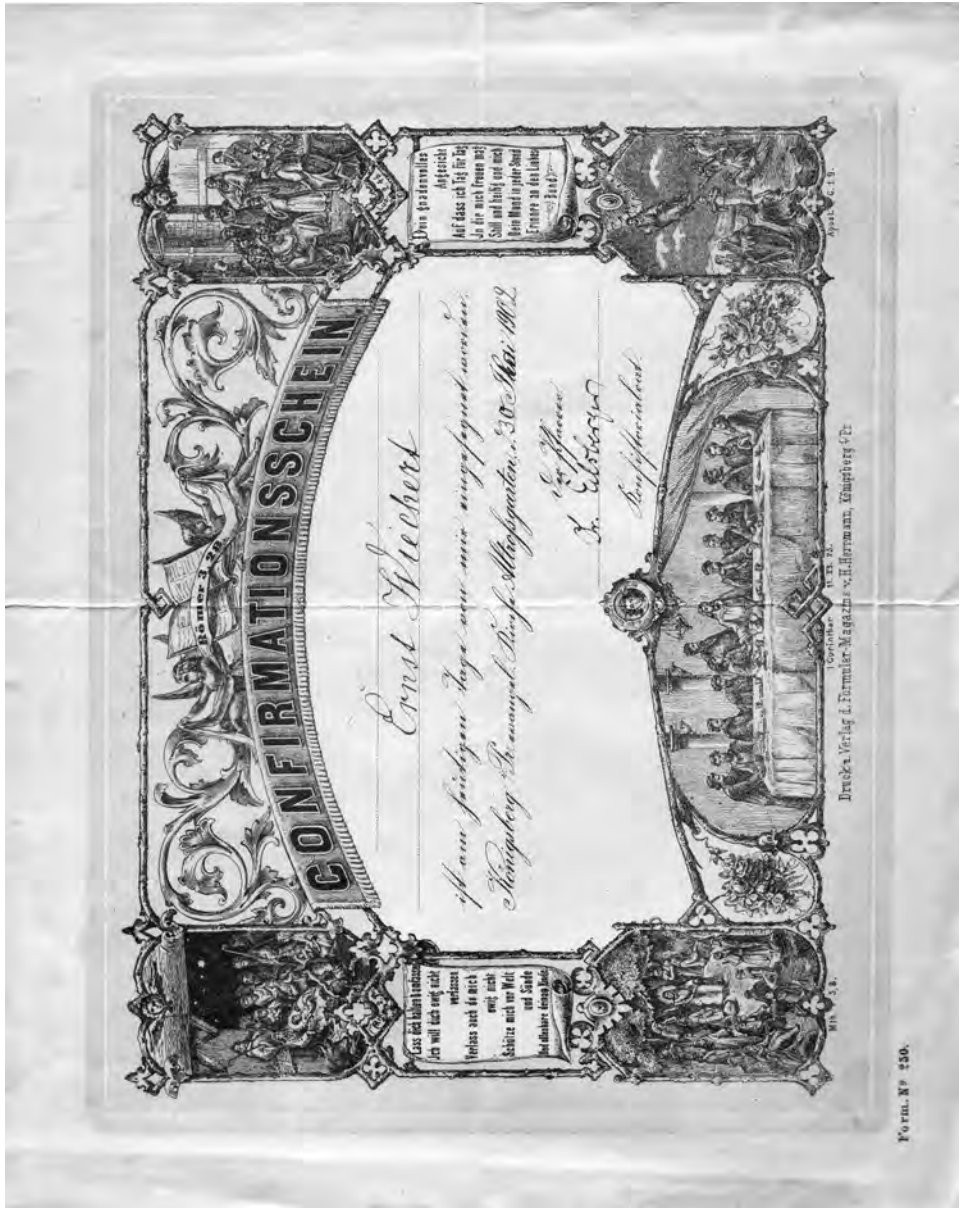 Römer 3, 28.
CONFIRMATIONSSCHEIN
Lass dich halten
Ich will dich ewig nicht
verlassen
Verlass auch du mich
ewig nicht
Schütze mich vor Welt
und Sünde
Und offenbare deinem Kinde
Dein gnadenvolles
Angesicht
Auf dass ich Tag für Tag
In dir mich freuen mag
Still und heilig und mich
Dein Mund jeder Stund
Erinnre an den Liebes
Bund
Ernst Wiechert
ist am heutigen Tage von mir eingesegnet worden.
Königsberg Pr. evangel. Kirche Altroßgarten, d. 30 Mai 1902
Der Pfarrer
Konsistorialrat
Mth. 5, 8.
1 Corinther 11.
Apost. G. 1. 9.
Druck u. Verlag d. Formular-Magazins v. H. Herrmann, Königsberg i/Pr.
Form. Nº 250.